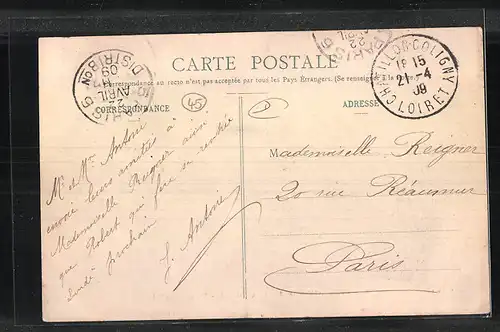 CARTE POSTALE
La correspondance au recto n'est pas acceptée par tous les Pays Étrangers. (Se renseigner à la
CORRESPONDANCE
ADRESSE
45
2
PARIS
DISTRIBON
22
AVRIL
09
PARIS
22
AVRIL
CHATILLON-COLIGNY
18 15
21-4
09
LOIRET
Mr et Mme Antoine
envoie leurs amitiés à
Mademoiselle Reigner ainsi
que Robert qui fera se
lundi prochain
J. Antoine
Mademoiselle Reigner
20 rue Réaumur
Paris